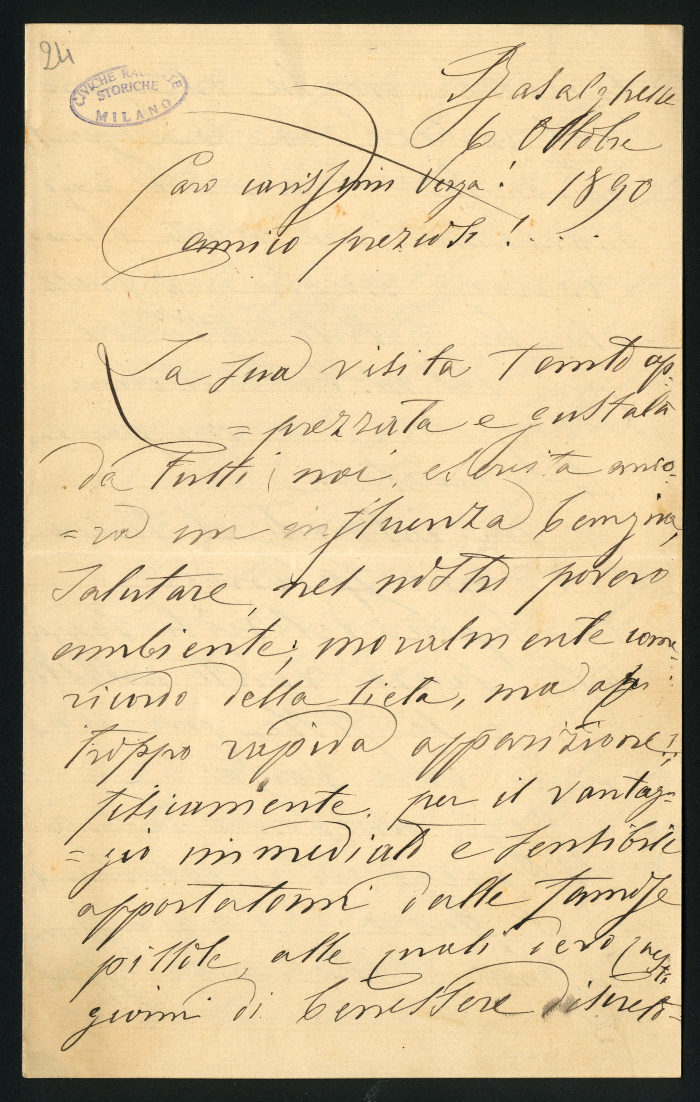 24
CIVICHE RACCOLTE
STORICHE
MILANO
Basalghelle
6 Ottobre
1890
Caro carissimo Verga!
amico prezioso!...
La sua visita tanto ap
=prezzata e gustata
da tutti noi, esercita anco-
=ra un influenza benigna,
salutare, nel nostro povero
ambiente; moralmente come
ricordo della lieta, ma
troppo rapida apparizione!;
fisicamente, per il vantag-
=gio immediato e sensibile
apportatomi dalle famose
pillole, alle quali devo questi
giorni di benessere discreto-